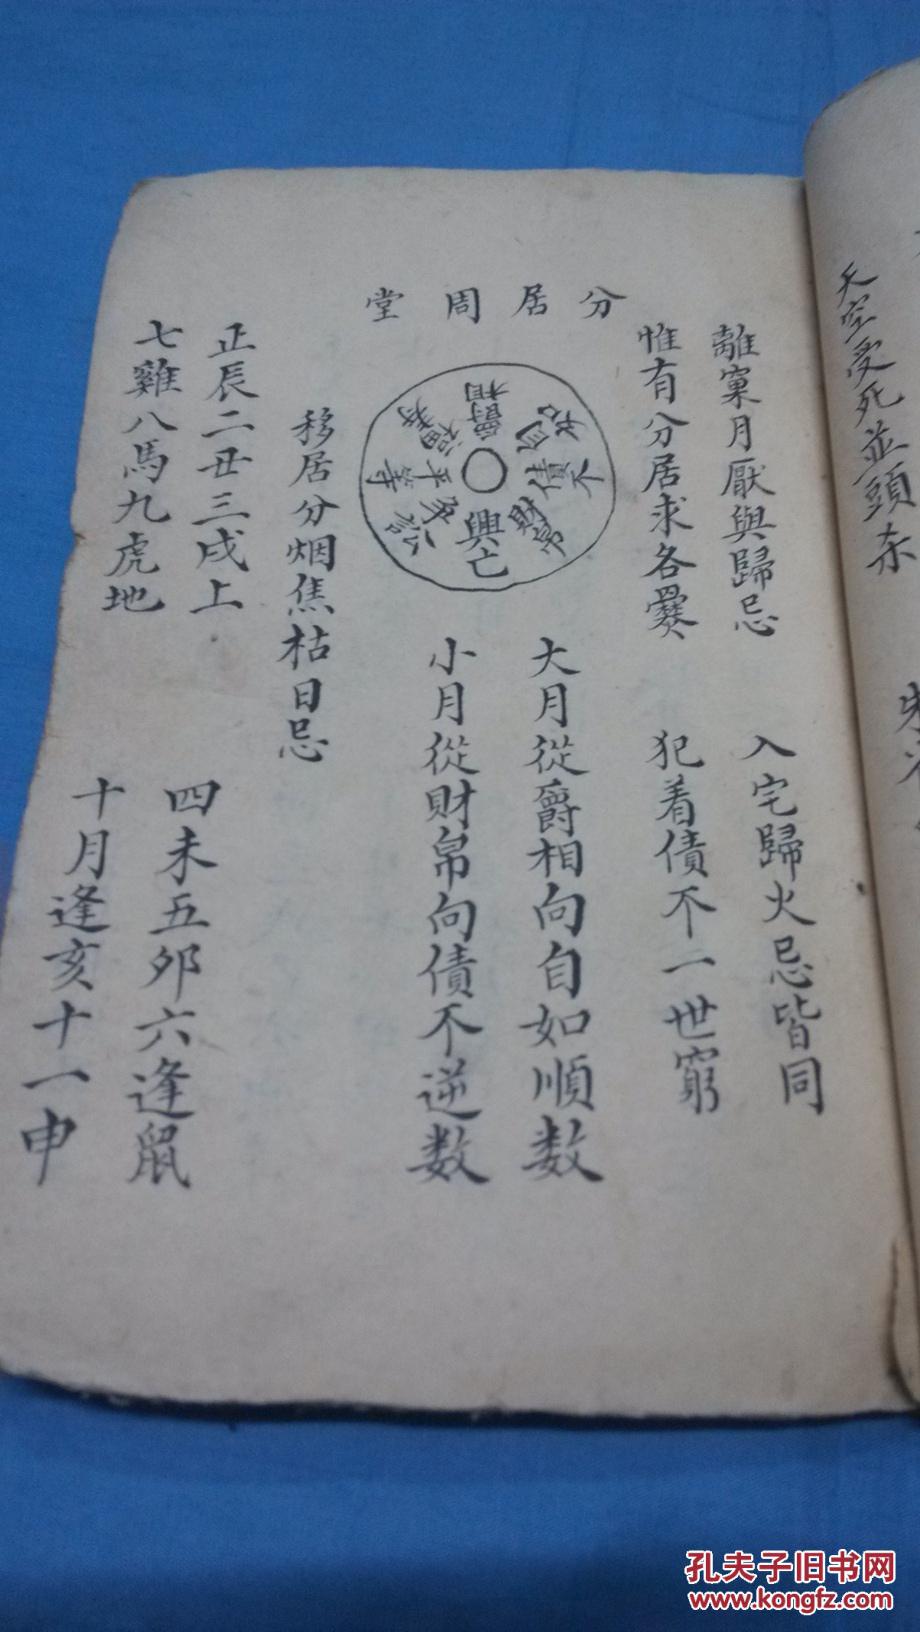 天空受死並頭杀
離窠月厭與歸忌
入宅歸火忌皆同
惟有分居求各爨
犯着債不一世窮
分居周堂
爵相
自如
債不
財帛
興亡
争訟
平等
福寿
大月從爵相向自如順数
小月從財帛向債不逆数
移居分烟焦枯日忌
正辰二丑三戌上
四未五夘六逢鼠
七雞八馬九虎地
十月逢亥十一申
孔夫子旧书网
www.kongfz.com